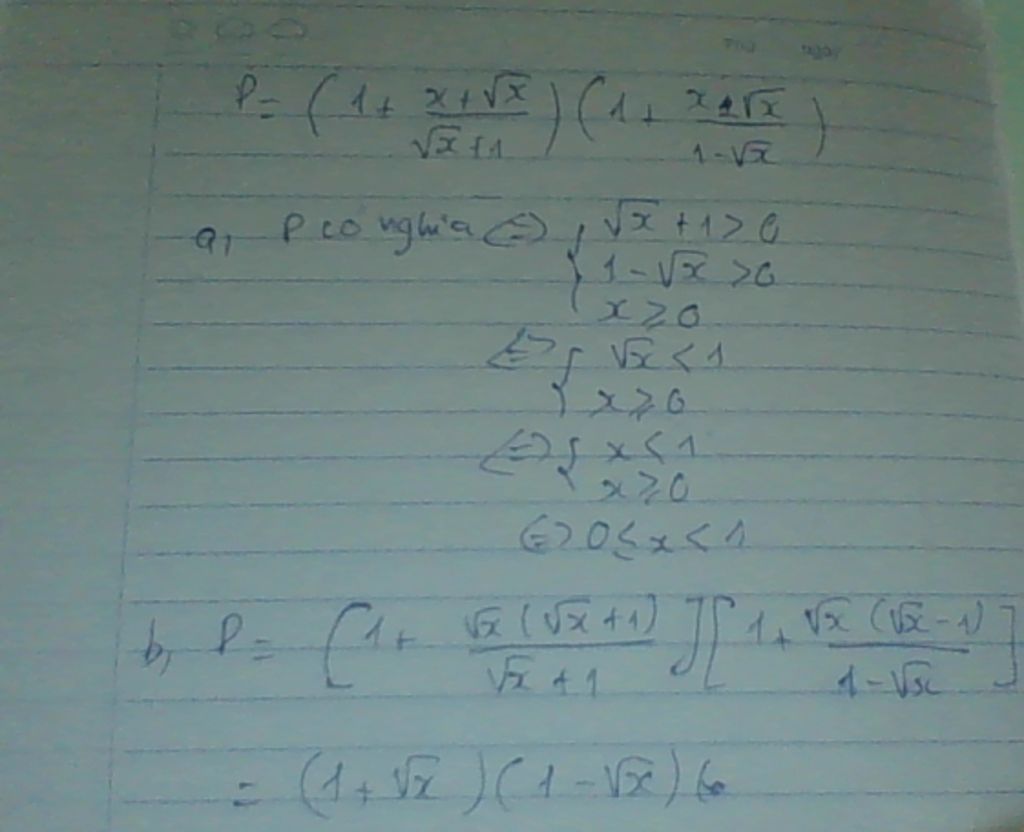 P = (1 + (x+√x)/(√x+1)) (1 + (x±√x)/(1-√x))
a, P có nghĩa <=> { √x + 1 > 0
1 - √x > 0
x ≥ 0
<=> { √x < 1
x ≥ 0
<=> { x < 1
x ≥ 0
<=> 0 ≤ x < 1
b, P = [1 + √x(√x+1)/(√x+1)] [1 + √x(√x-1)/(1-√x)]
= (1+√x)(1-√x)